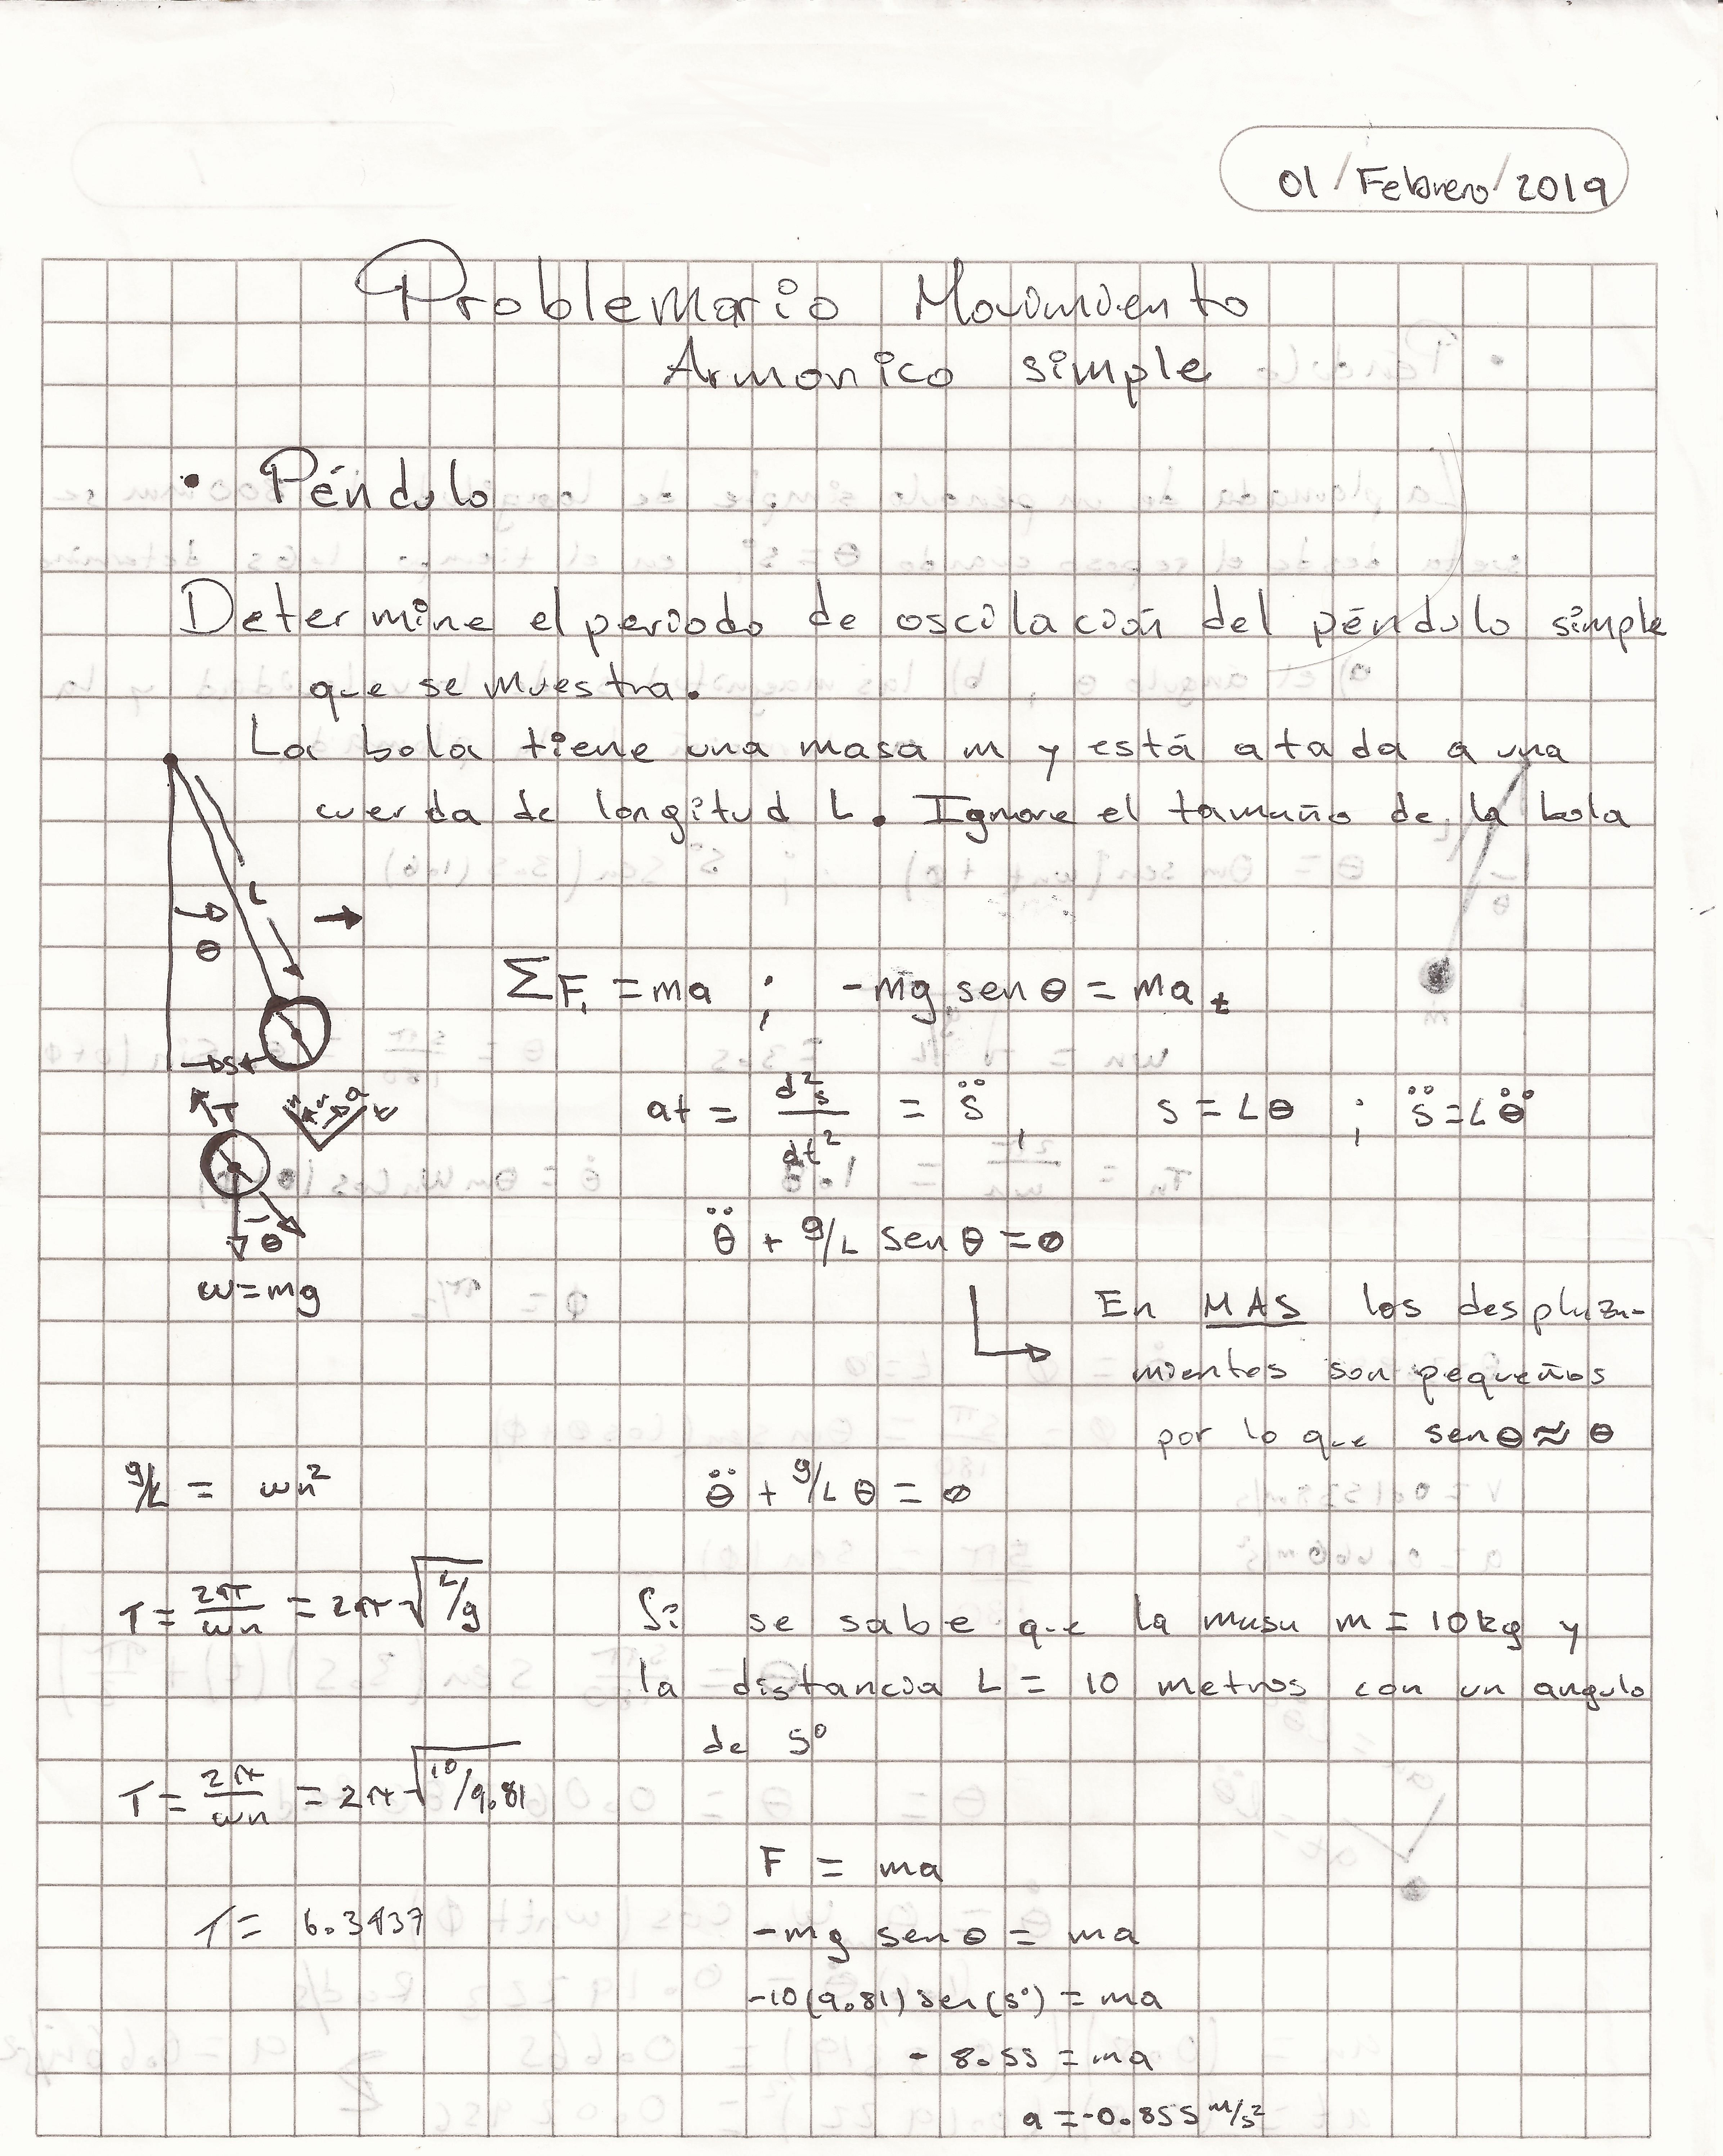 01/Febrero/2019
Problemario Movimiento
Armonico simple
• Péndulo
Determine el periodo de oscilación del péndulo simple
que se muestra.
La bola tiene una masa m y está atada a una
cuerda de longitud L. Ignore el tamaño de la bola
L
θ
s
ΣFt = ma ; -mg sen θ = mat
T
at = d²s/dt² = s̈, s = Lθ ; s̈ = Lθ̈
θ
w = mg
θ̈ + g/L sen θ = 0
En MAS los desplaza-
mientos son pequeños
por lo que senθ ≈ θ
g/L = wn²
θ̈ + g/L θ = 0
T = 2π/wn = 2π√L/g
Si se sabe que la masa m = 10kg y
la distancia L = 10 metros con un angulo
de 5°
T = 2π/wn = 2π√10/9.81
F = ma
T = 6.3437
-mg senθ = ma
-10(9.81) sen(5°) = ma
- 8.55 = ma
a = -0.855 m/s²